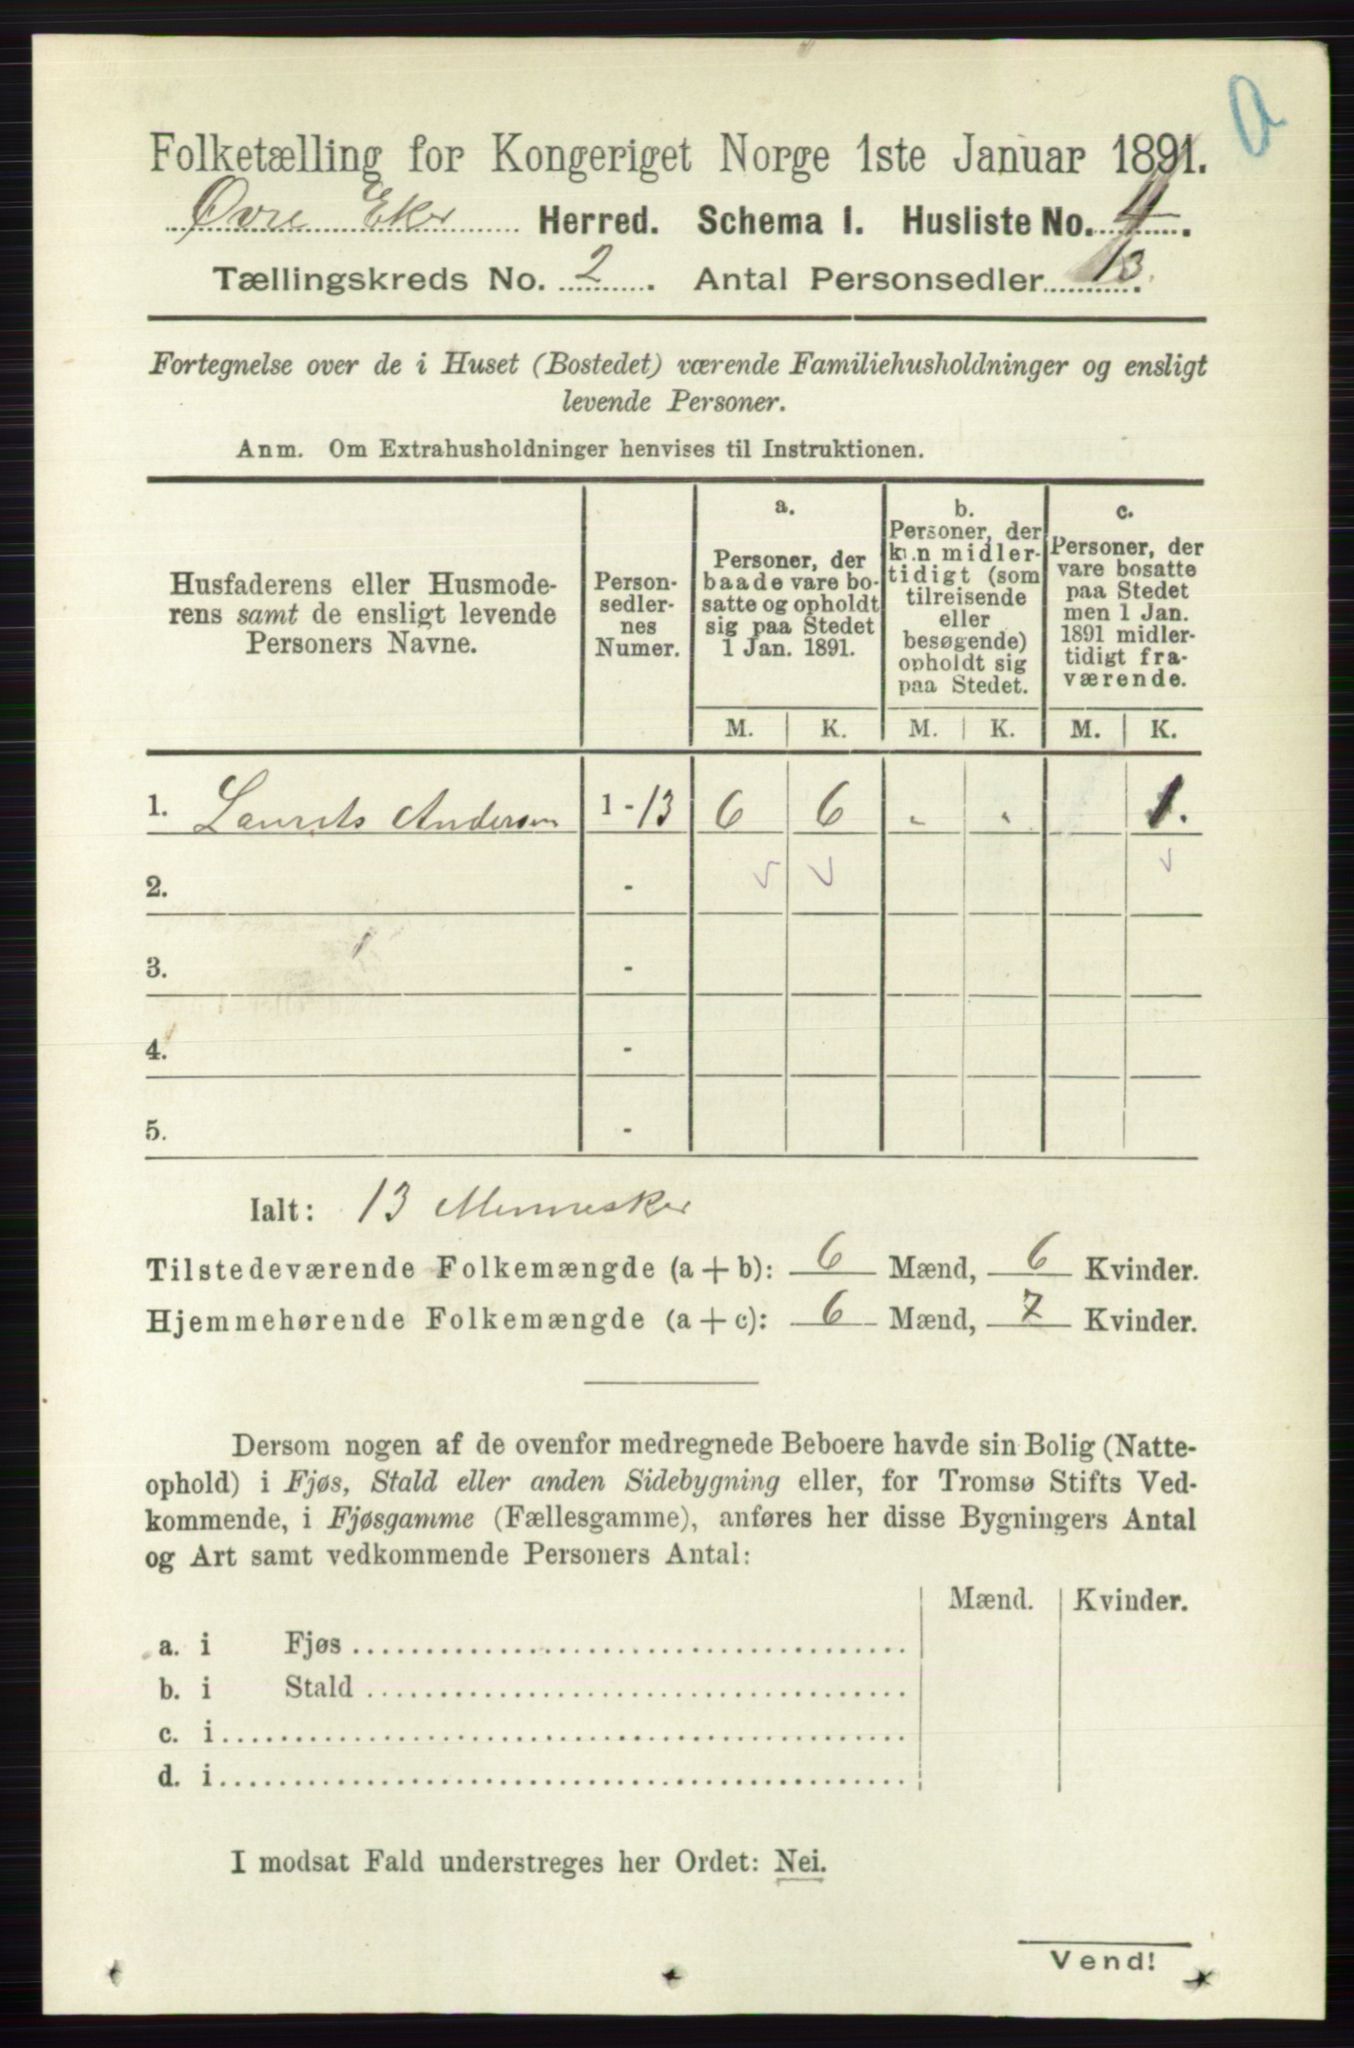 Folketælling for Kongeriget Norge 1ste Januar 1891.
Øvre Eker Herred. Schema 1. Husliste No. 4.
Tællingskreds No. 2. Antal Personsedler 13.
Fortegnelse over de i Huset (Bostedet) værende Familiehusholdninger og ensligt
levende Personer.
Anm. Om Extrahusholdninger henvises til Instruktionen.
Husfaderens eller Husmode-
rens samt de ensligt levende
Personers Navne.
Person-
sedler-
nes
Numer.
a.
Personer, der
baade vare bo-
satte og opholdt
sig paa Stedet
1 Jan. 1891.
b.
Personer, der
kun midler-
tidigt (som
tilreisende
eller
besøgende)
opholdt sig
paa Stedet.
c.
Personer, der
vare bosatte
paa Stedet
men 1 Jan.
1891 midler-
tidigt fra-
værende.
M. K. M. K. M. K.
1. Laurits Andersen 1 - 13 6 6 - - 1.
2. -
3. -
4. -
5. -
Ialt: 13 Mennesker
Tilstedeværende Folkemængde (a + b): 6 Mænd, 6 Kvinder.
Hjemmehørende Folkemængde (a + c): 6 Mænd, 7 Kvinder.
Dersom nogen af de ovenfor medregnede Beboere havde sin Bolig (Natte-
ophold) i Fjøs, Stald eller anden Sidebygning eller, for Tromsø Stifts Ved-
kommende, i Fjøsgamme (Fællesgamme), anføres her disse Bygningers Antal
og Art samt vedkommende Personers Antal:
Mænd. Kvinder.
a. i Fjøs
b. i Stald
c. i
d. i
I modsat Fald understreges her Ordet: Nei.
Vend!